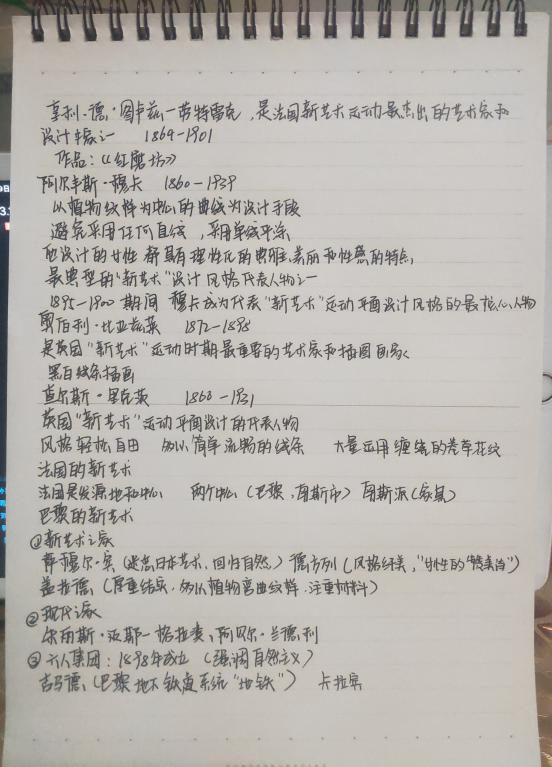 亨利·德·图卢兹-劳特雷克，是法国新艺术运动最杰出的艺术家和
设计家之一 1864-1901
作品：《红磨坊》
阿尔丰斯·穆卡 1860-1939
以植物纹样为中心的曲线为设计手段
避免采用任何直线，采用单线平涂
他设计的女性都具有理性化的典雅、美丽和性感的特点，
最典型的"新艺术"设计风格代表人物之一
1895-1900期间 穆卡成为代表"新艺术"运动平面设计风格的最核心人物
奥伯利·比亚兹莱 1872-1898
是英国"新艺术"运动时期最重要的艺术家和插图画家
黑白线条插画
查尔斯·里克茨 1860-1931
英国"新艺术"运动平面设计的代表人物
风格轻松自由 多以简单流畅的线条 大量运用缠绕的卷草花纹
法国的新艺术
法国是发源地和中心 两个中心（巴黎，南斯市）南斯派（家具）
巴黎的新艺术
①新艺术之家
萨穆尔·宾（迷恋日本艺术，回归自然）德方列（风格纤美，"女性的"）
盖拉德（厚重结实，多以植物弯曲纹样，注重材料）
②现代之家
尔丽斯·迈耶-格拉夫、阿贝尔·兰德利
③六人集团：1898年成立（强调自然主义）
吉马德（巴黎地下铁道系统"地铁"） 卡拉宾